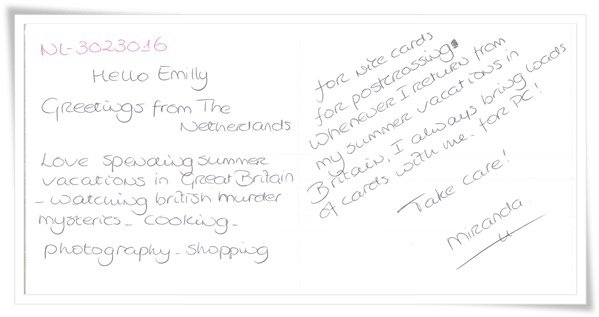 NL-3023016
Hello Emilly
Greetings from The
Netherlands
Love spending summer
vacations in Great Britain
- watching british murder
mysteries - cooking -
photography - shopping
for nice cards
for postcrossing.
Whenever I return from
my summer vacations in
Britain, I always bring loads
of cards with me. for PC!
Take care!
Miranda.